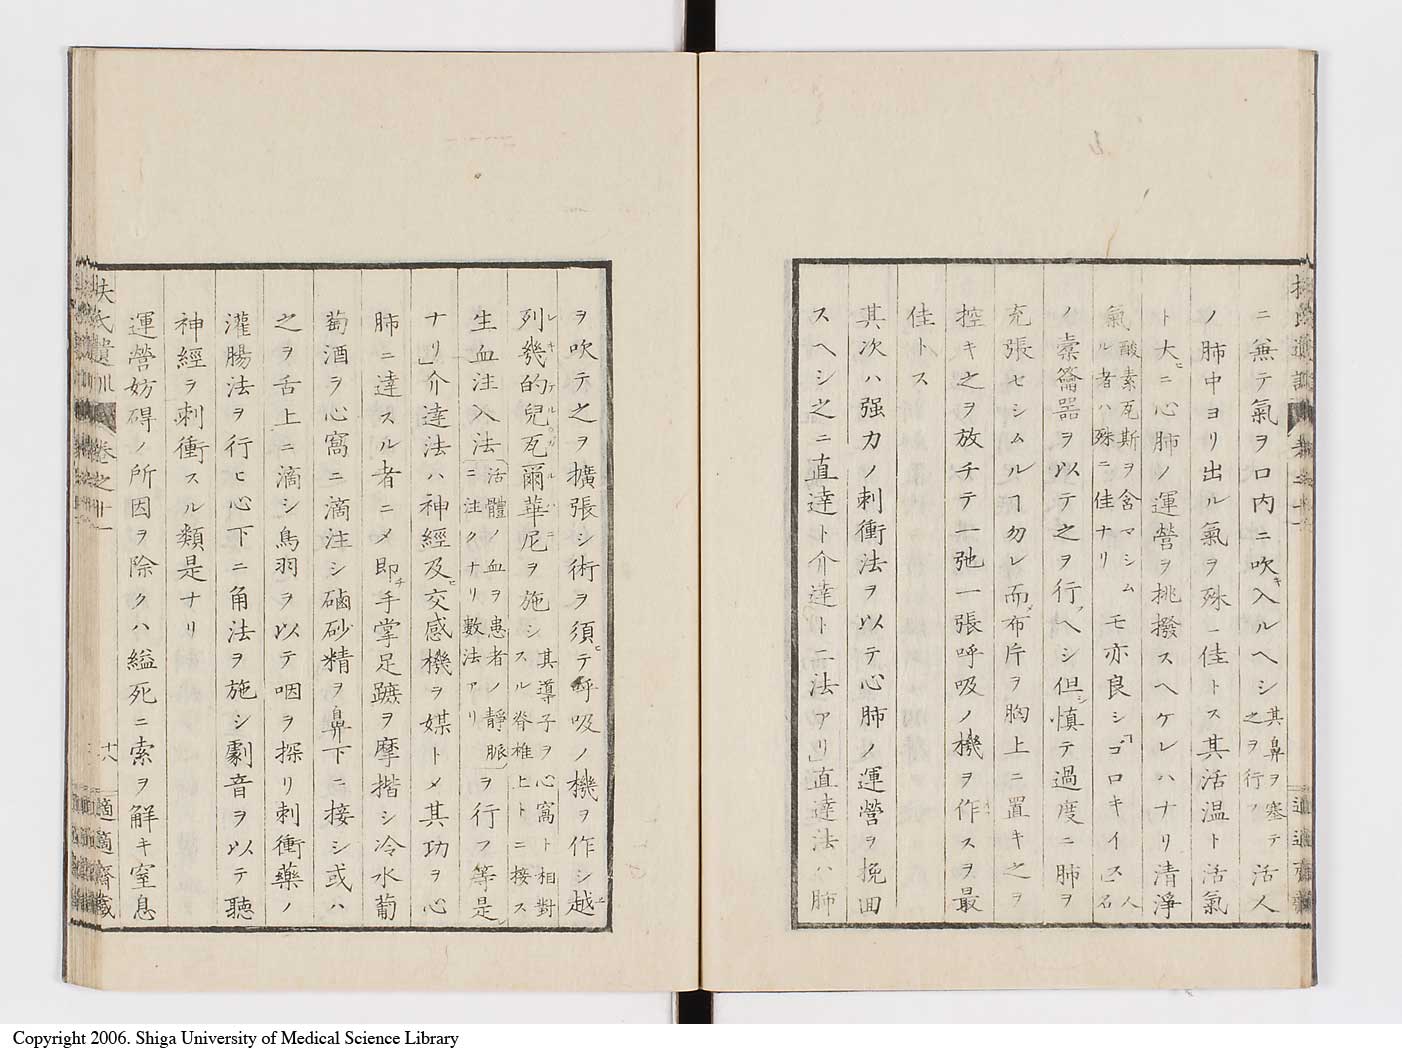 ニ無テ氣ヲ口内ニ吹キ入ルヘシ其鼻ヲ塞テ之ヲ行フ活人
ノ肺中ヨリ出ル氣ヲ殊ニ佳トス其活温ト活氣
ト大ニ心肺ノ運營ヲ挑撥スヘケレハナリ清淨
氣酸素瓦斯ヲ含マシムル者ハ殊ニ佳ナリモ亦良シゴロキイス人名
ノ橐籥器ヲ以テ之ヲ行フヘシ但シ慎テ過度ニ肺ヲ
充張セシムルヿ勿レ而〆布片ヲ胸上ニ置キ之ヲ
控キ之ヲ放チテ一弛一張呼吸ノ機ヲ作スヲ最
佳トス
其次ハ强力ノ刺衝法ヲ以テ心肺ノ運營ヲ挽回
スヘシ之ニ直達ト介達ト二法アリ」直達法ハ肺
ヲ吹テ之ヲ擴張シ術ヲ須ヒテ呼吸ノ機ヲ作シ越
列幾的兒瓦爾華尼ヲ施シ其導子ヲ心窩ト相對スル脊椎上トニ接ス
生血注入法活體ノ血ヲ患者ノ靜脈ニ注クナリ數法アリヲ行フ等是レ
ナリ」介達法ハ神經及ヒ交感機ヲ媒トメ其功ヲ心
肺ニ達スル者ニメ即チ手掌足蹠ヲ摩揩シ冷水葡
萄酒ヲ心窩ニ滴注シ磠砂精ヲ鼻下ニ接シ或ハ
之ヲ舌上ニ滴シ鳥羽ヲ以テ咽ヲ探リ刺衝藥ノ
灌腸法ヲ行ヒ心下ニ角法ヲ施シ劇音ヲ以テ聽
神經ヲ刺衝スル類是ナリ
運營妨碍ノ所因ヲ除クハ縊死ニ索ヲ解キ窒息
扶氏遺訓 卷之廿一 十八 適適齋藏
Copyright 2006. Shiga University of Medical Science Library